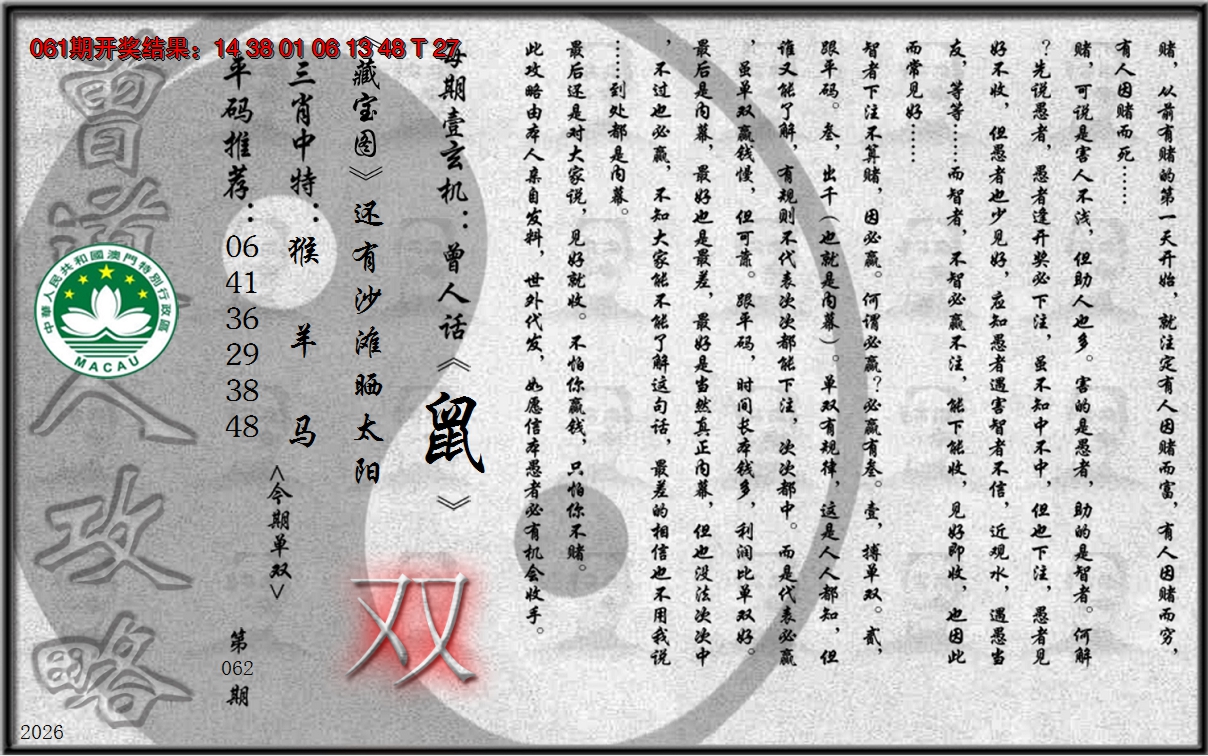 061期开奖结果：14 38 01 06 13 48 T 27
赌，从前有赌的第一天开始，就注定有人因赌而富，有人因赌而穷，
有人因赌而死……
赌，可说是害人不浅，但助人也多。害的是愚者，助的是智者。何解
？先说愚者，愚者逢开奖必下注，虽不知中不中，但也下注，愚者见
好不收，但愚者也少见好，应知愚者遇害智者不信，近观水，遇愚当
友，等等……而智者，不智必赢不注，能下能收，见好即收，也因此
而常见好……
智者下注不算赌，因必赢。何谓必赢？必赢有叁。壹，搏单双。贰，
跟平码。叁，出千（也就是内幕）。单双有规律，这是人人都知，但
谁又能了解，有规则不代表次次都能下注，次次都中。而是代表必赢
，虽单双赢钱慢，但可靠。跟平码，时间长本钱多，利润比单双好。
最后是内幕，最好也是最差，最好是当然真正内幕，但也没法次次中
，不过也必赢，不知大家能不能了解这句话，最差的相信也不用我说
……到处都是内幕。
最后还是对大家说，见好就收。不怕你赢钱，只怕你不赌。
此攻略由本人亲自发料，世外代发，如愿信本愚者必有机会收手。
每期壹玄机：曾人话《鼠》
《藏宝图》还有沙滩晒太阳
双
三肖中特：猴 羊 马
<今期单双>
平码推荐：
06
41
36
29
38
48
第
062
期
曾道人攻略
中華人民共和國澳門特別行政區
MACAU
2026